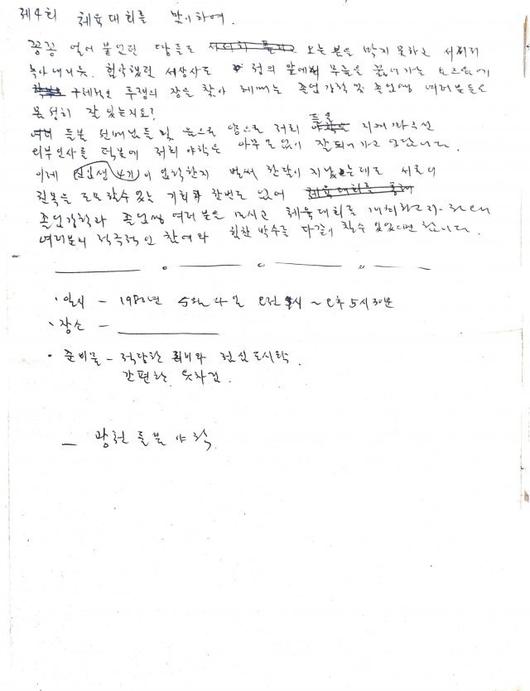 제4회 체육대회를 맞이하여.
꽁꽁 얼어 붙었던 땅들도 오는 봄을 막지 못하고 서서히
녹아내리듯, 험악했던 세상사도 정의 앞에서 무릎을 꿇어가는 요즈음에
투쟁의 장을 찾아 헤매는 졸업강학 및 졸업생 여러분들은
몸성히 잘 있는지요?
들불 선배님들 및 음으로 양으로 저희 들불 지켜봐 주신
외부인사들 더불어 저희 야학은 아무 탈 없이 잘 되어가고 있습니다.
이제 신입생 4기 이 입학한지 벌써 한달이 지났는데도 서로의
친목을 도모할 수 있는 기회가 한번도 없어 체육대회를 통해
졸업강학과 졸업생 여러분을 모시고 체육대회를 개최하고자 하오니
여러분의 적극적인 참여와 힘찬 박수를 다같이 칠 수 있었으면 합니다.
· 일시 - 1980년 5월 4일 오전 9시 ~ 오후 5시 30분
· 장소 -
· 준비물 - 적당한 회비와 점심 도시락.
간편한 옷차림.
- 광천 들불 야학.